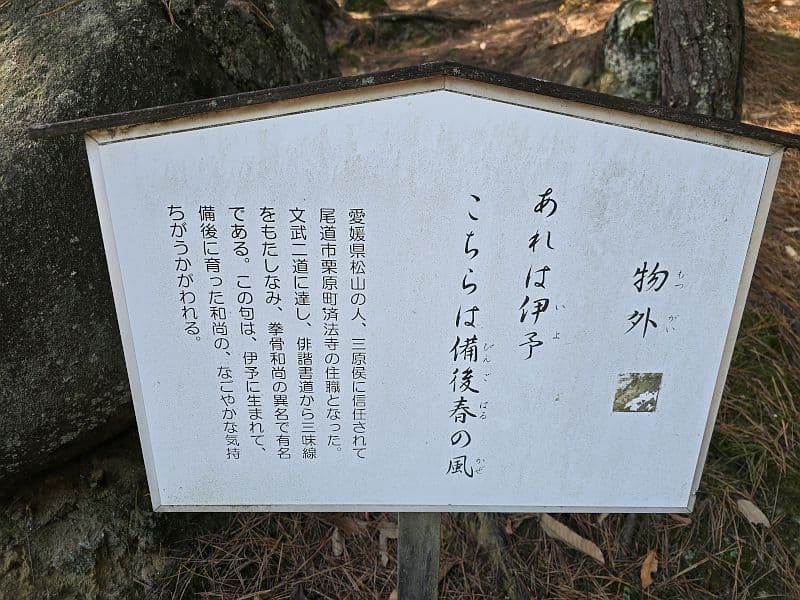 物外
もつがい
あれは伊予
いよ
こちらは備後春の風
びんごはるかぜ
愛媛県松山の人、三原侯に信任されて
尾道市栗原町済法寺の住職となった。
文武二道に達し、俳諧書道から三味線
をもたしなみ、拳骨和尚の異名で有名
である。この句は、伊予に生まれて、
備後に育った和尚の、なごやかな気持
ちがうかがわれる。